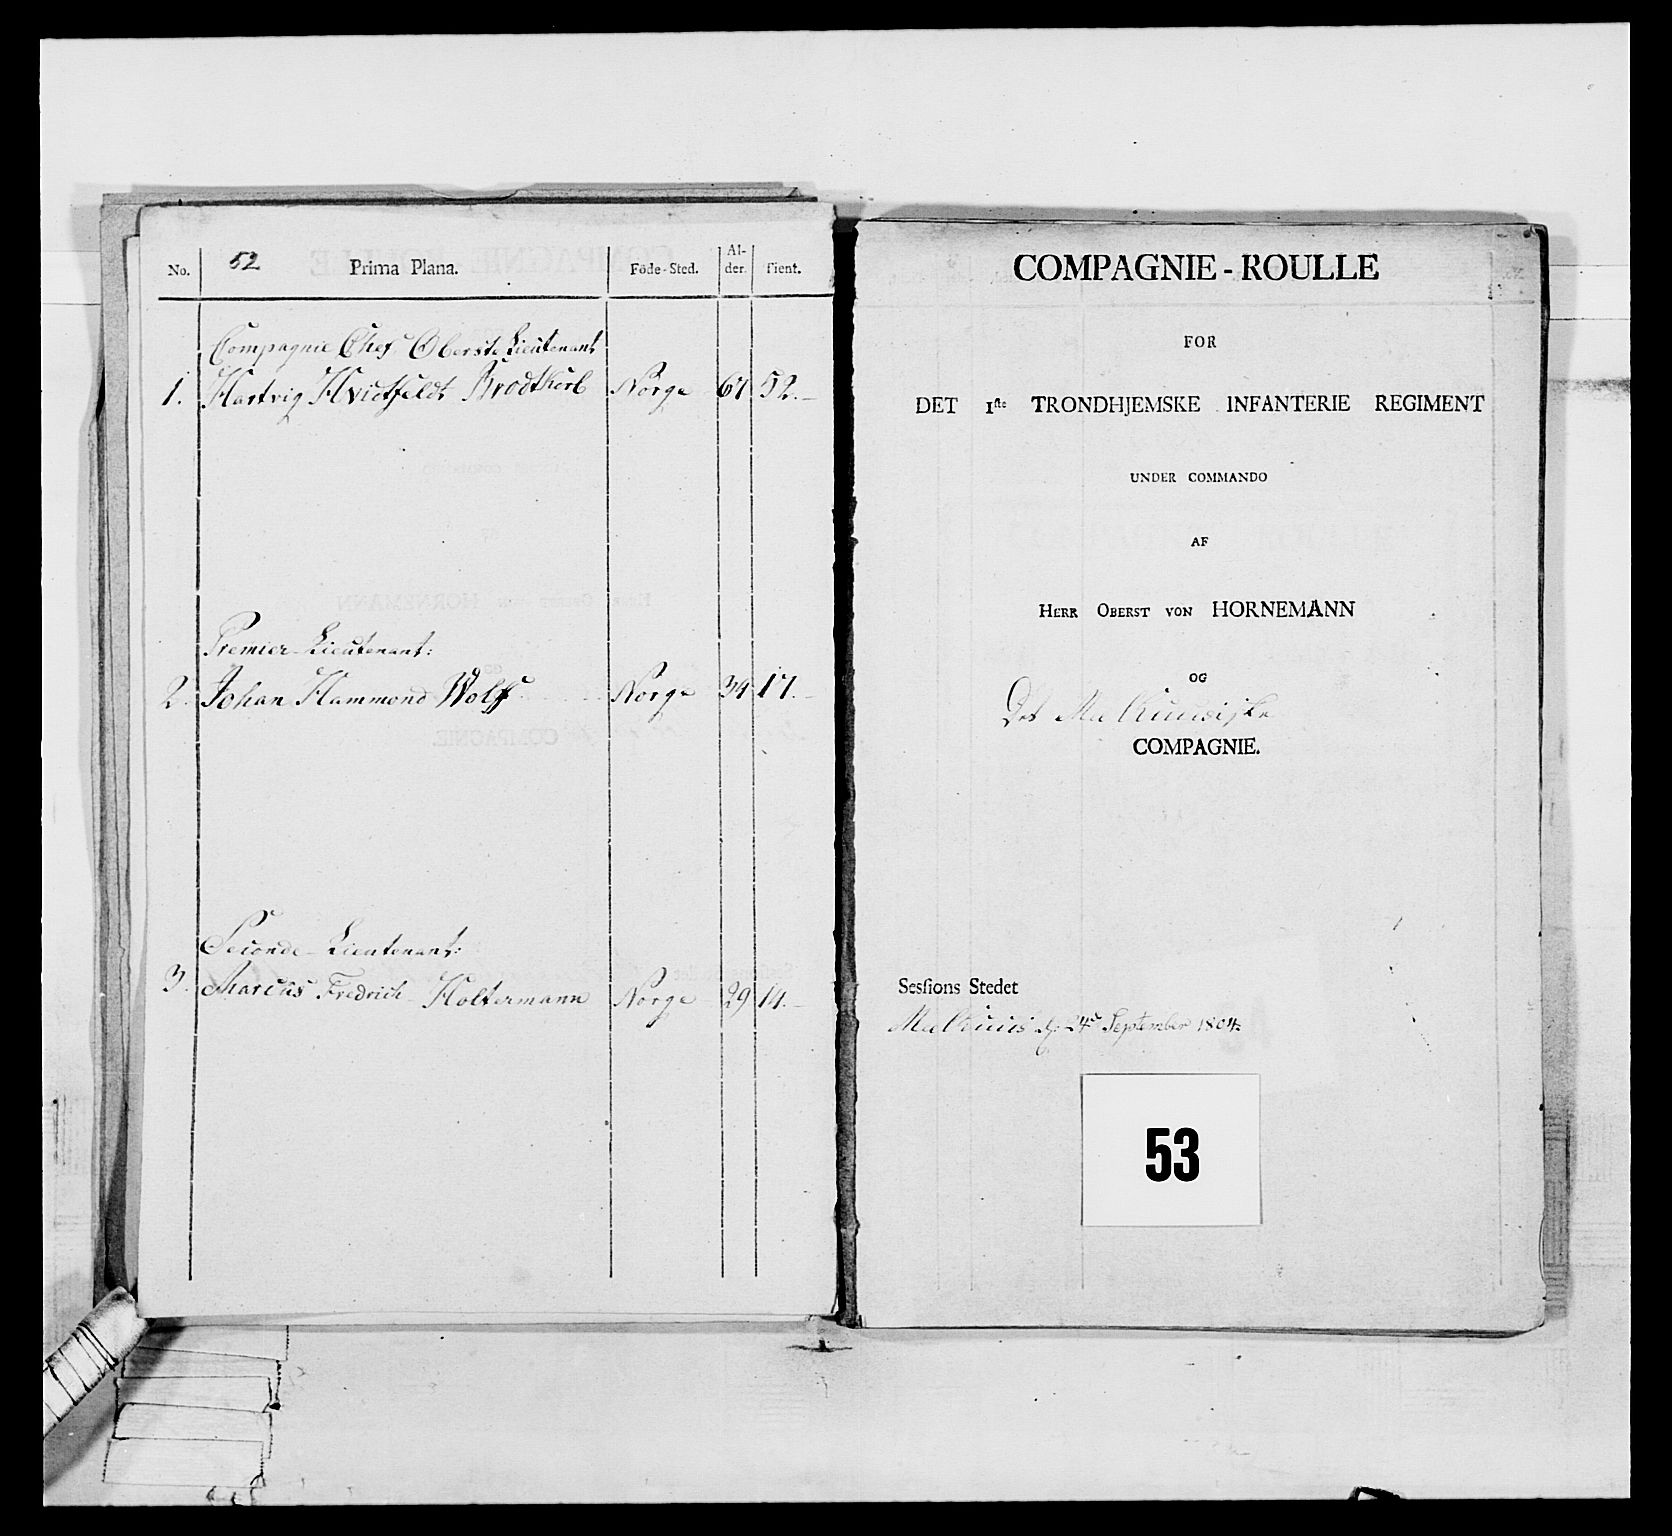 No. 52 Prima Plana. Föde-Sted. Al-der. tient.
Compagnie Chef, Oberste Lieutenant
1. Hartvig Hvidtfeldt Brodtkorb Norge 67 52.
Premier-Lieutenant:
2. Johan Hammond Wolff Norge 34 17.
Seconde-Lieutenant:
3. Marcus Fredrich Holtermann Norge 29 14.
COMPAGNIE-ROULLE
FOR
DET 1ste TRONDHJEMSKE INFANTERIE REGIMENT
UNDER COMMANDO
AF
HERR OBERST VON HORNEMANN
OG
Det Meelhuusiske
COMPAGNIE.
Sessions Stedet
Meelhuus d. 24de September 1804.
53